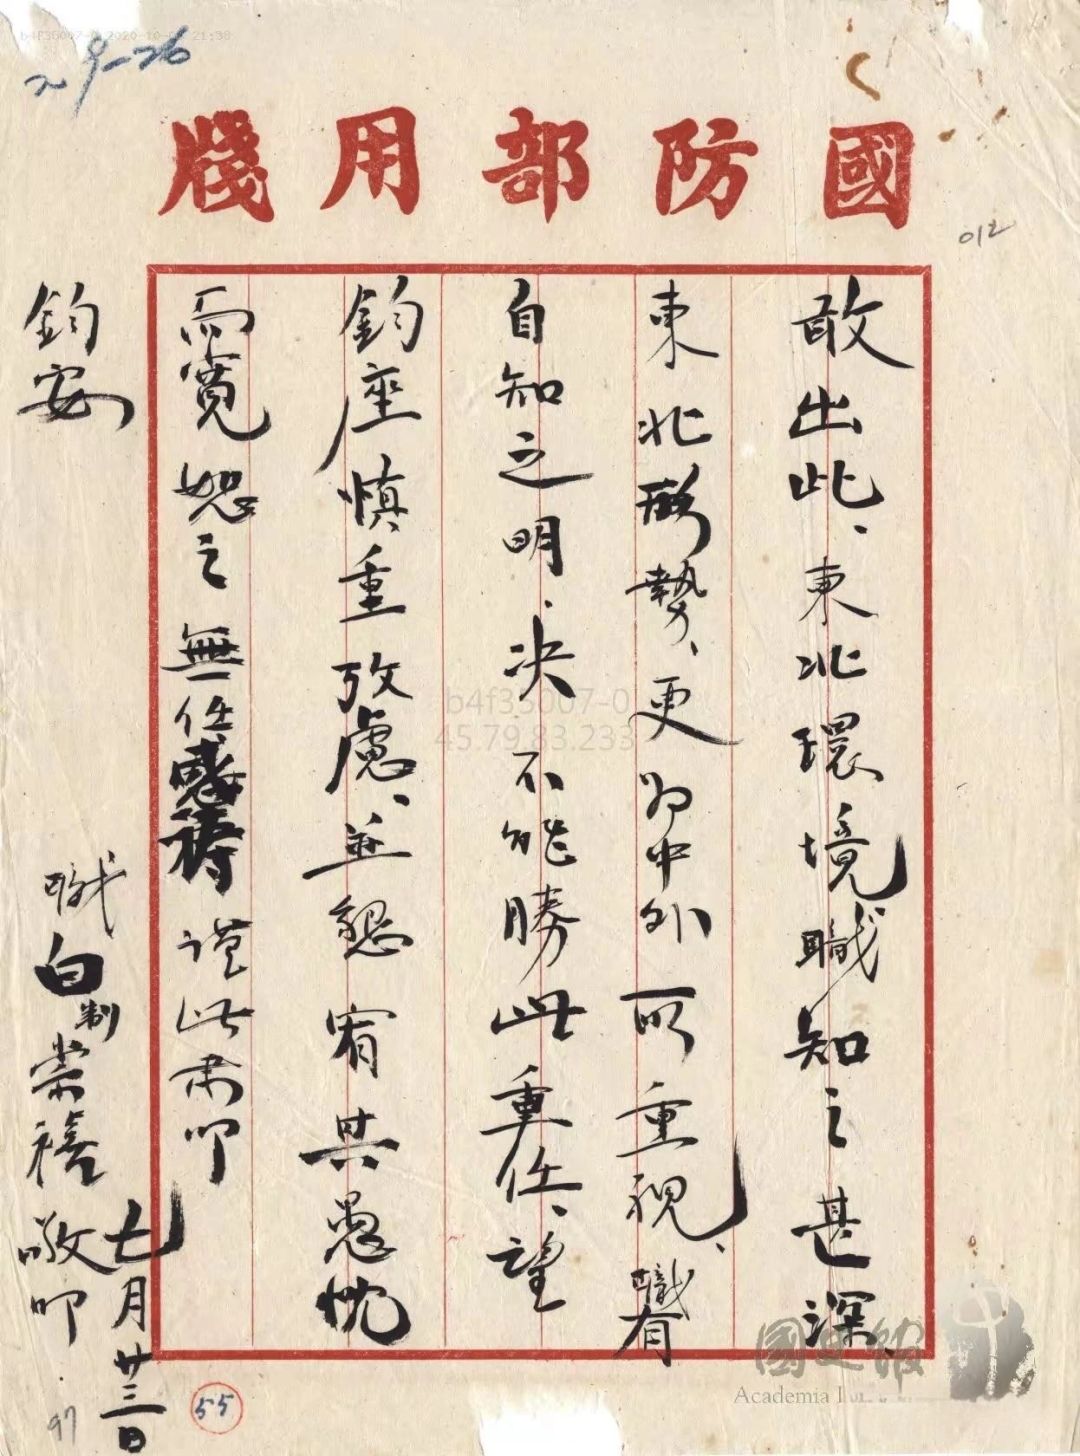 國防部用牋
敢出此、東北環境職知之甚深、
東北形勢、更為中外所重視、職有
自知之明、決不能勝此重任、望
鈞座慎重攷慮、並懇宥其愚忱
而寬恕之無任感禱謹此肅叩
鈞安
職白制崇禧敬叩
七月廿三日
29-26
012
55
97
b4f35007-0
45.79.83.233
國史館
Academia